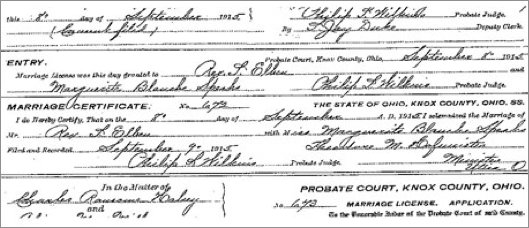 this 8th day of September 1915 Philip L Wilkins Probate Judge.
(Consent filed) By L Jay Duke Deputy Clerk.
ENTRY. Probate Court, Knox County, Ohio, September 8th 1915
Marriage License was this day granted to Rex F. Ellen and
Marguerite Blanche Sparks Philip L Wilkins Probate Judge.
MARRIAGE CERTIFICATE. No 672 THE STATE OF OHIO, KNOX COUNTY, OHIO, SS.
I do Hereby Certify, That on the 8th day of September A. D. 1915 I solemnized the Marriage of
Mr. Rex F. Ellen with Miss Marguerite Blanche Sparks
Filed and Recorded September 9th 1915 Theodore M.
Philip L Wilkins Probate Judge. Minister
In the Matter of PROBATE COURT, KNOX COUNTY, OHIO.
Charles Ransome Halsey
and No 673 MARRIAGE LICENSE. APPLICATION.
To the Honorable Judge of the Probate Court of said County.